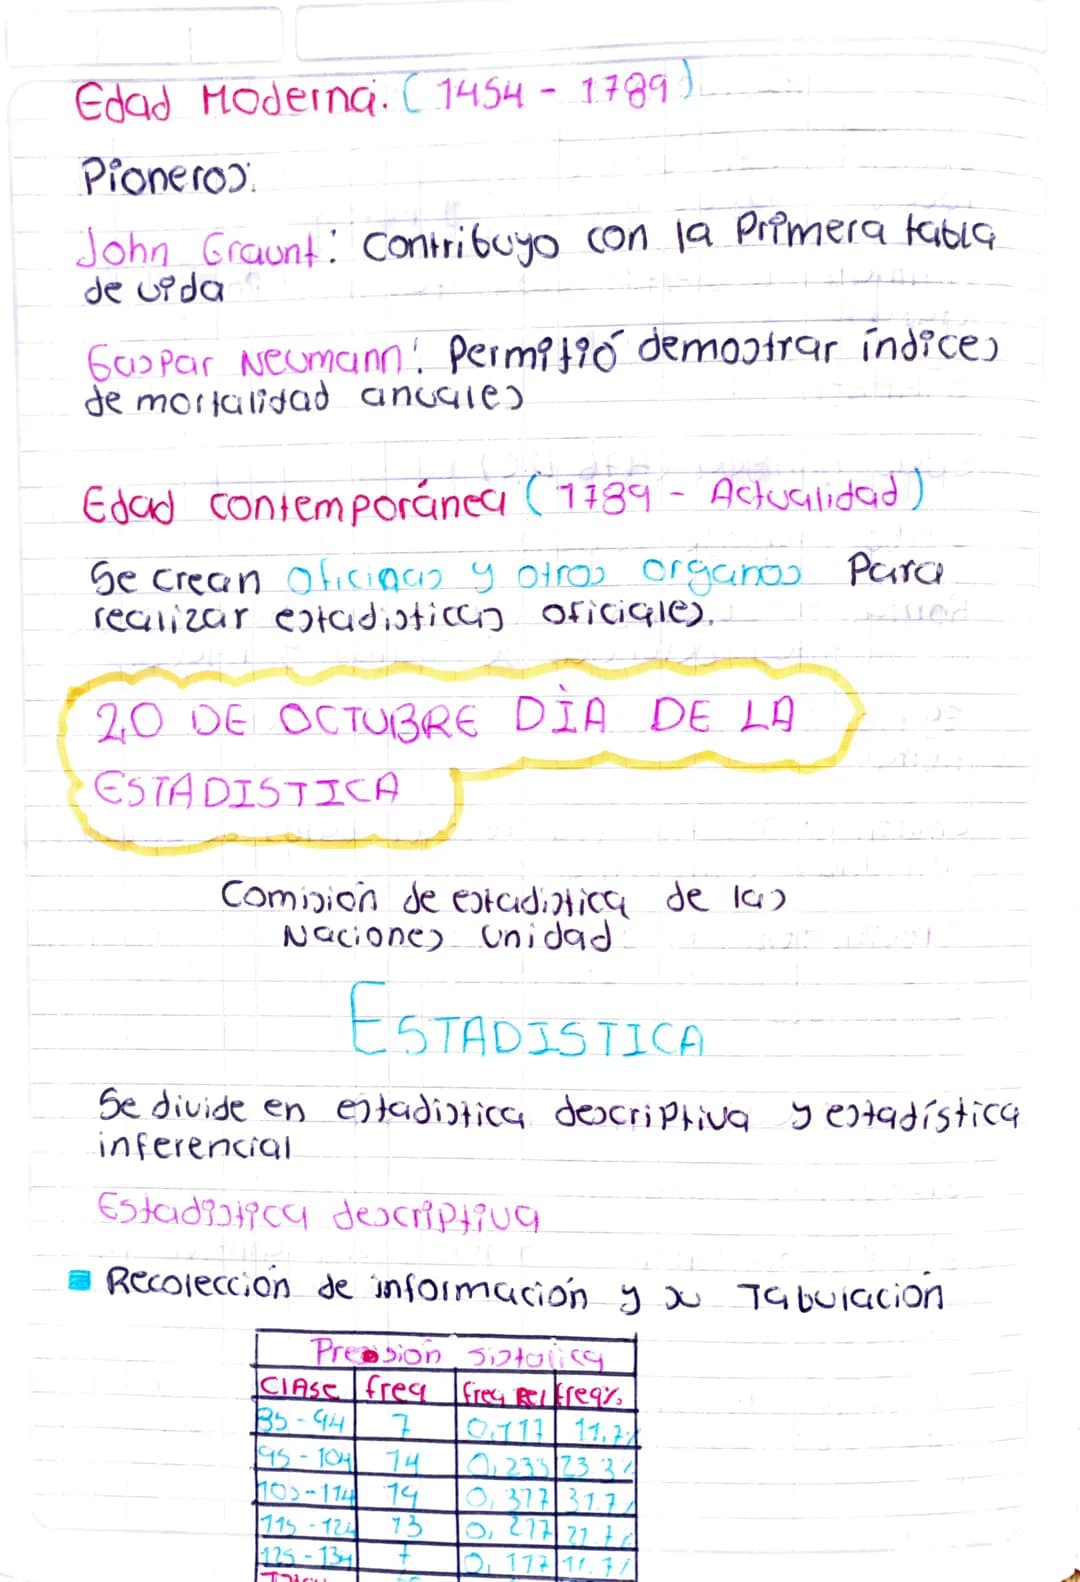 Edad Moderna. (1454 - 1789)
Pioneros:
John Graunt: Contribuyo con la Primera tabla
de vida
Gaspar Neumann: Permitió demostrar índices
de mortalidad anuales
Edad contemporánea (1789 - Actualidad)
Se crean oficinas y otros organos Para
realizar estadisticas oficiales.
20 DE OCTUBRE DÌA DE LA
ESTADISTICA
Comisión de estadistica de las
Naciones Unidad
ESTADISTICA
Se divide en estadistica descriptiva y estadística
inferencial
Estadistica descriptiva
Recolección de información y su Tabulación
Presion Sistolica
Clase freq freq Rel freq%
85-94 7 0,117 11,7%
95-104 14 0,233 23.3%
105-114 19 0,317 31.7%
115-124 13 0,217 21.7%
125-134 7 0,117 11.7%